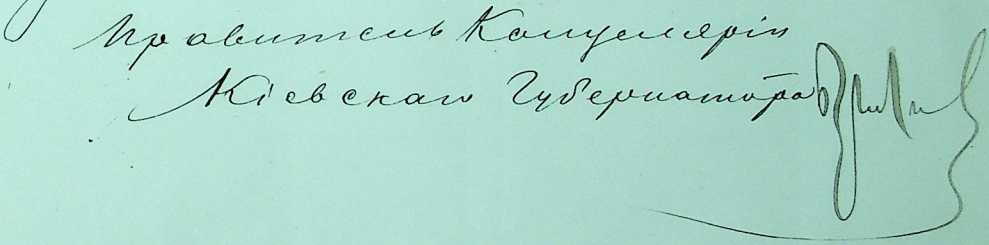 Правитель Канцеляріи
Кіевскаго Губернатора